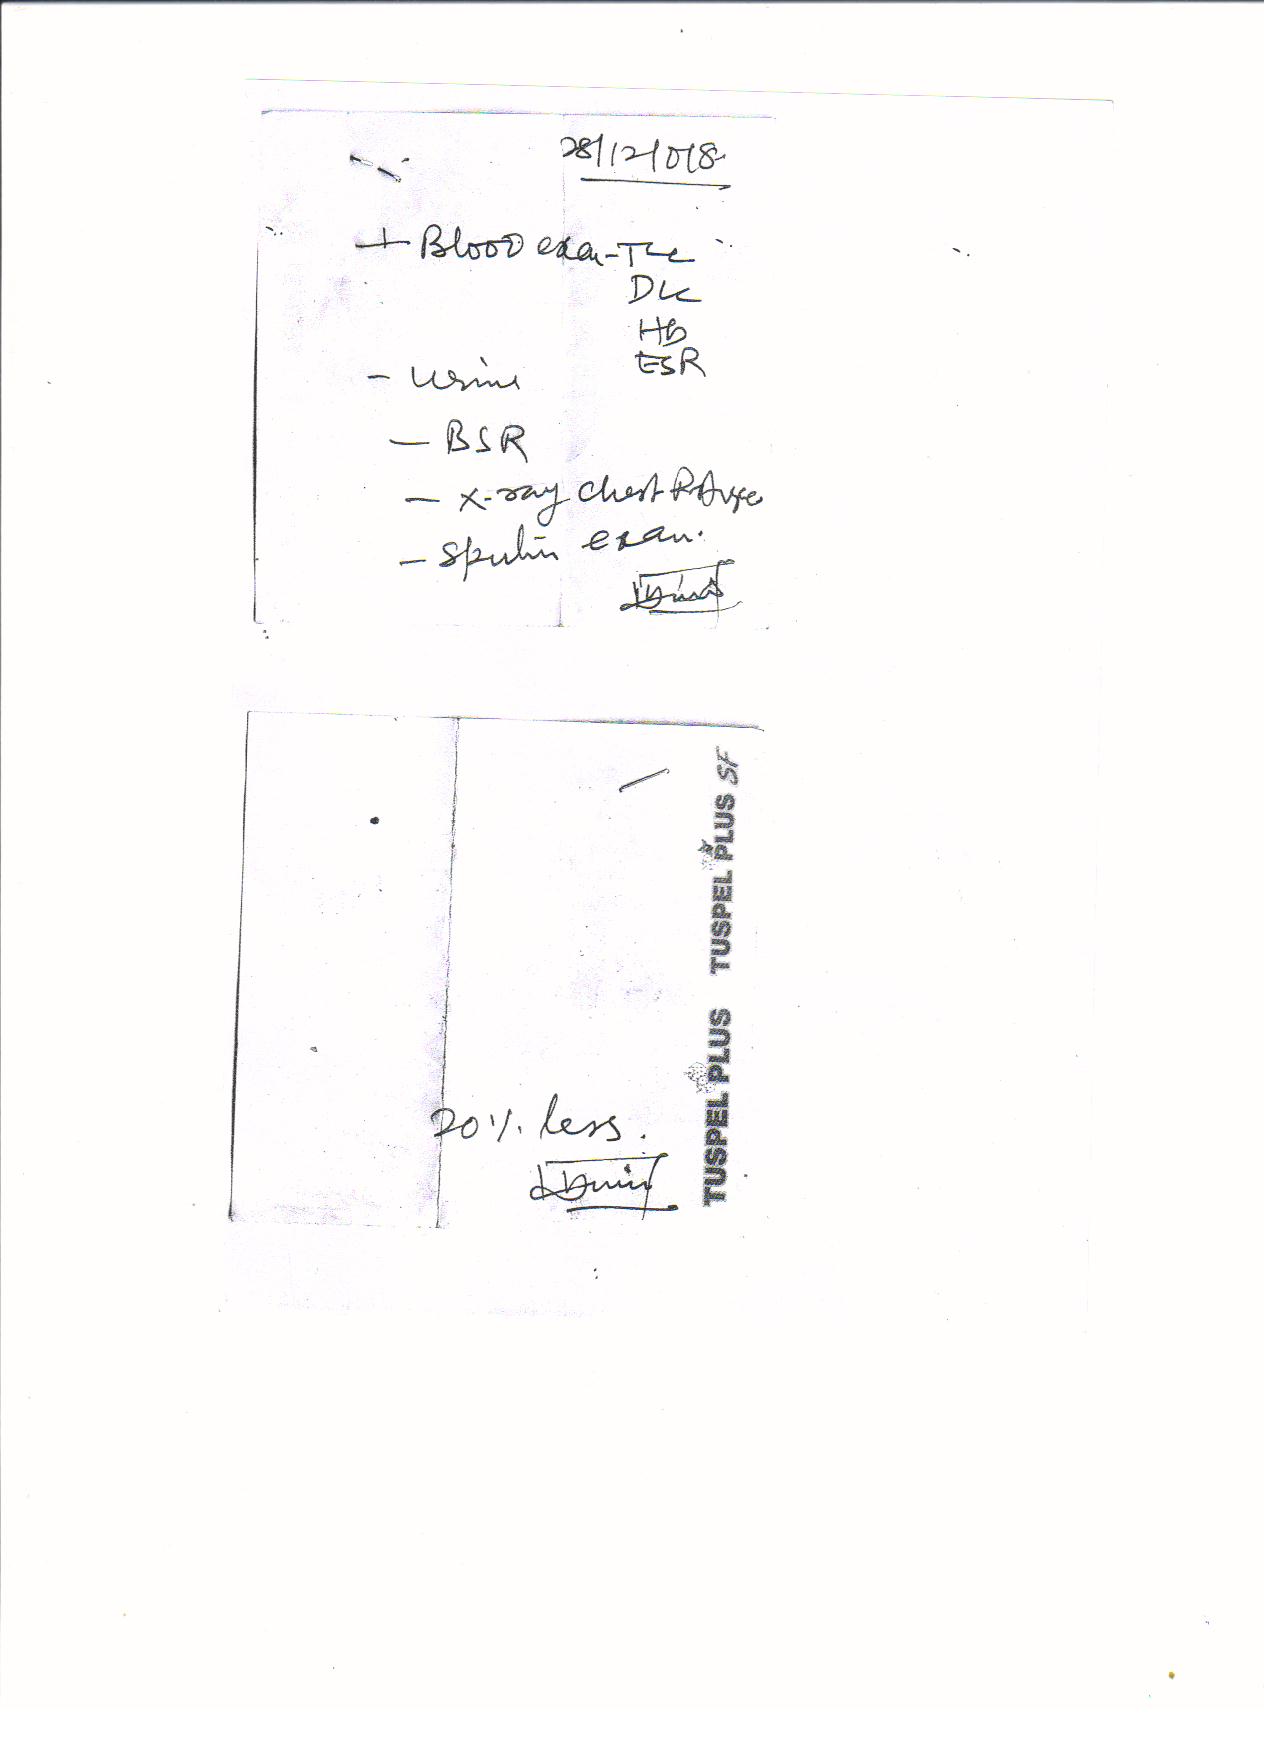 28/12/018
Blood exam - TLC
DLC
HB
ESR
- Urine
- BSR
- X-ray chest P.A view
- Sputum exam.
20% less.
TUSPEL PLUS TUSPEL PLUS SF